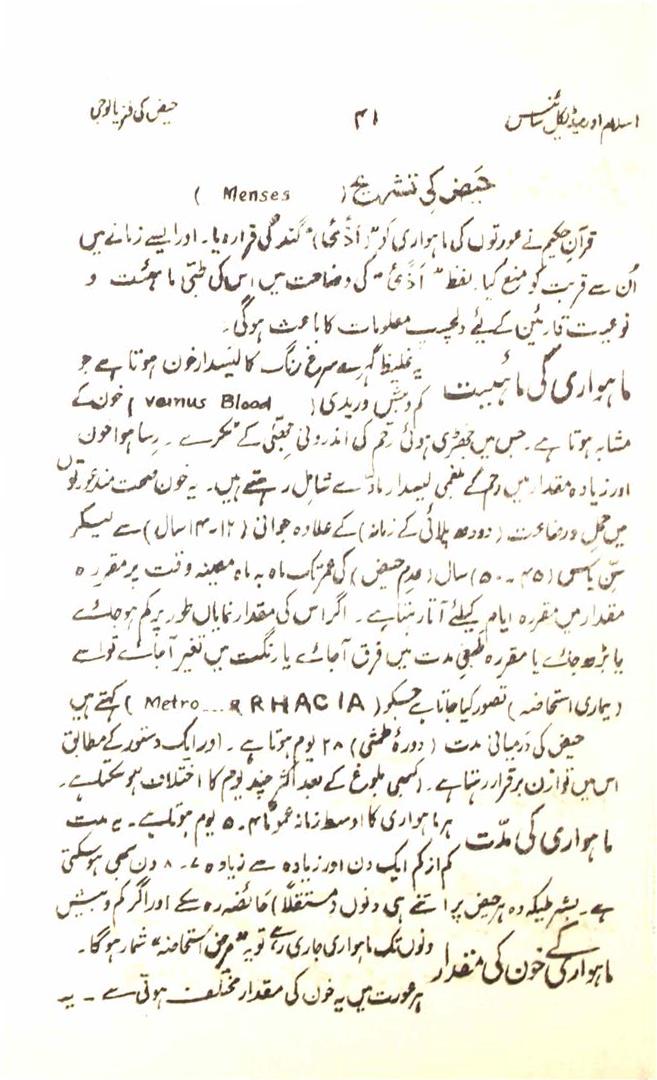 اسلام اور میڈیکل سائنس
۴۱
حیض کی فزیالوجی
حیض کی تشریح ( Menses )
قرآن حکیم نے عورتوں کی ماہواری کو "( اَذًی) " گندگی قرار دیا۔ اور ایسے زمانے میں
اُن سے قربت کو منع کیا۔ لفظ " اَذًی " کی وضاحت میں اس کی طبّی ماہیئت و
نوعیت قارئین کے لیے دلچسپ معلومات کا باعث ہوگی۔
ماہواری کی ماہیت
یہ غلیظ گہرے سرخ رنگ کا لیسدار خون ہوتا ہے جو
کم و بیش وریدی ( Vemus Blood ) خون کے
مشابہ ہوتا ہے۔ جس میں جھڑی ہوئی رحم کی اندرونی جھلّی کے ٹکرے ۔ رسا ہوا خون
اور زیادہ مقدار میں رحم کے بلغمی لیسدار مادّے شامل رہتے ہیں۔ یہ خون صحت مند عورتوں
میں حمل و رضاعت ( دودھ پلائی کے زمانہ ) کے علاوہ جوانی ( ۱۲۔۱۴ سال ) سے لیکر
سنِّ یاس ( ۴۵ ۔۵۰ ) سال ( عدم حیض ) کی عمر تک ماہ بہ ماہ معینہ وقت پر مقررہ
مقدار میں مقررہ ایام کیلئے آتا رہتا ہے ۔ اگر اس کی مقدار نمایاں طور پر کم ہو جائے
یا بڑھ جائے یا مقررہ طبعی مدت میں فرق آ جائے یا رنگت میں تغیر آ جائے تو اسے
( بیماری استحاضہ ) تصور کیا جاتا ہے جسکو ( Metro...RRHACIA ) کہتے ہیں
حیض کی درمیانی مدت ( دورۂ طمثی ) ۲۸ یوم ہوتا ہے ۔ اور ایک دستور کے مطابق
اس میں توازن برقرار رہتا ہے۔ ( کبھی بلوغ کے بعد اکثر چند یوم کا اختلاف ہو سکتا ہے۔
ماہواری کی مدّت
ہر ماہواری کا اوسط زمانہ عموماً ۴۔۵ یوم ہوتا ہے۔ یہ مدت
کم از کم ایک دن اور زیادہ سے زیادہ ۷۔ ۸ دن بھی ہو سکتی
ہے۔ بشرطیکہ وہ ہر حیض پر اتنے ہی دنوں ( مستقلاً ) حائضہ رہ سکے اور اگر کم و بیش
دنوں تک ماہواری جاری رہے تو یہ " مرض استحاضہ " شمار ہو گا۔
ماہواری کے خون کی مقدار
ہر عورت میں یہ خون کی مقدار مختلف ہوتی ہے ۔ یہ